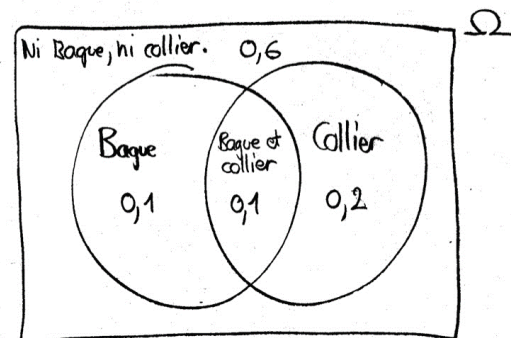 Ω
Ni Bague, ni collier. 0,6
Bague
Bague et
collier
Collier
0,1
0,1
0,2